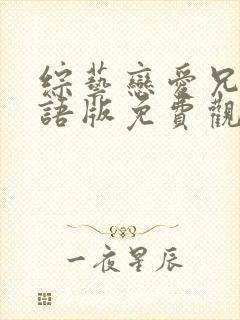 綜藝戀愛兄
語版免費觀
一夜星辰